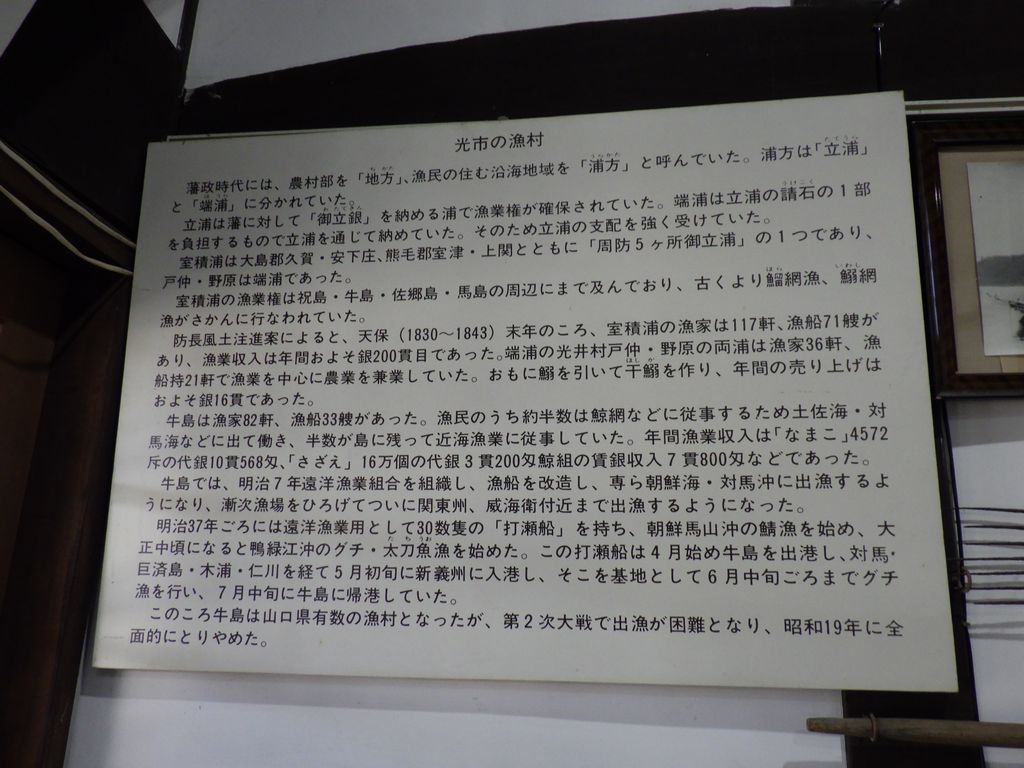 光市の漁村
藩政時代には、農村部を「地方」、漁民の住む沿海地域を「浦方」と呼んでいた。浦方は「立浦」
と「端浦」に分かれていた。
立浦は藩に対して「御立銀」を納める浦で漁業権が確保されていた。端浦は立浦の請石の1部
を負担するもので立浦を通じて納めていた。そのため立浦の支配を強く受けていた。
室積浦は大島郡久賀・安下庄、熊毛郡室津・上関とともに「周防5ヶ所御立浦」の1つであり、
戸仲・野原は端浦であった。
室積浦の漁業権は祝島・牛島・佐郷島・馬島の周辺にまで及んでおり、古くより鰡網漁、鰯網
漁がさかんに行なわれていた。
防長風土注進案によると、天保(1830〜1843)末年のころ、室積浦の漁家は117軒、漁船71艘が
あり、漁業収入は年間およそ銀200貫目であった。端浦の光井村戸仲・野原の両浦は漁家36軒、漁
船持21軒で漁業を中心に農業を兼業していた。おもに鰯を引いて干鰯を作り、年間の売り上げは
およそ銀16貫であった。
牛島は漁家82軒、漁船33艘があった。漁民のうち約半数は鯨網などに従事するため土佐海・対
馬海などに出て働き、半数が島に残って近海漁業に従事していた。年間漁業収入は「なまこ」4572
斥の代銀10貫568匁、「さざえ」16万個の代銀3貫200匁鯨組の賃銀収入7貫800匁などであった。
牛島では、明治7年遠洋漁業組合を組織し、漁船を改造し、専ら朝鮮海・対馬沖に出漁するよ
うになり、漸次漁場をひろげてついに関東州、威海衛付近まで出漁するようになった。
明治37年ごろには遠洋漁業用として30数隻の「打瀬船」を持ち、朝鮮馬山沖の鯖漁を始め、大
正中頃になると鴨緑江沖のグチ・太刀魚漁を始めた。この打瀬船は4月始め牛島を出港し、対馬・
巨済島・木浦・仁川を経て5月初旬に新義州に入港し、そこを基地として6月中旬ごろまでグチ
漁を行い、7月中旬に牛島に帰港していた。
このころ牛島は山口県有数の漁村となったが、第2次大戦で出漁が困難となり、昭和19年に全
面的にとりやめた。